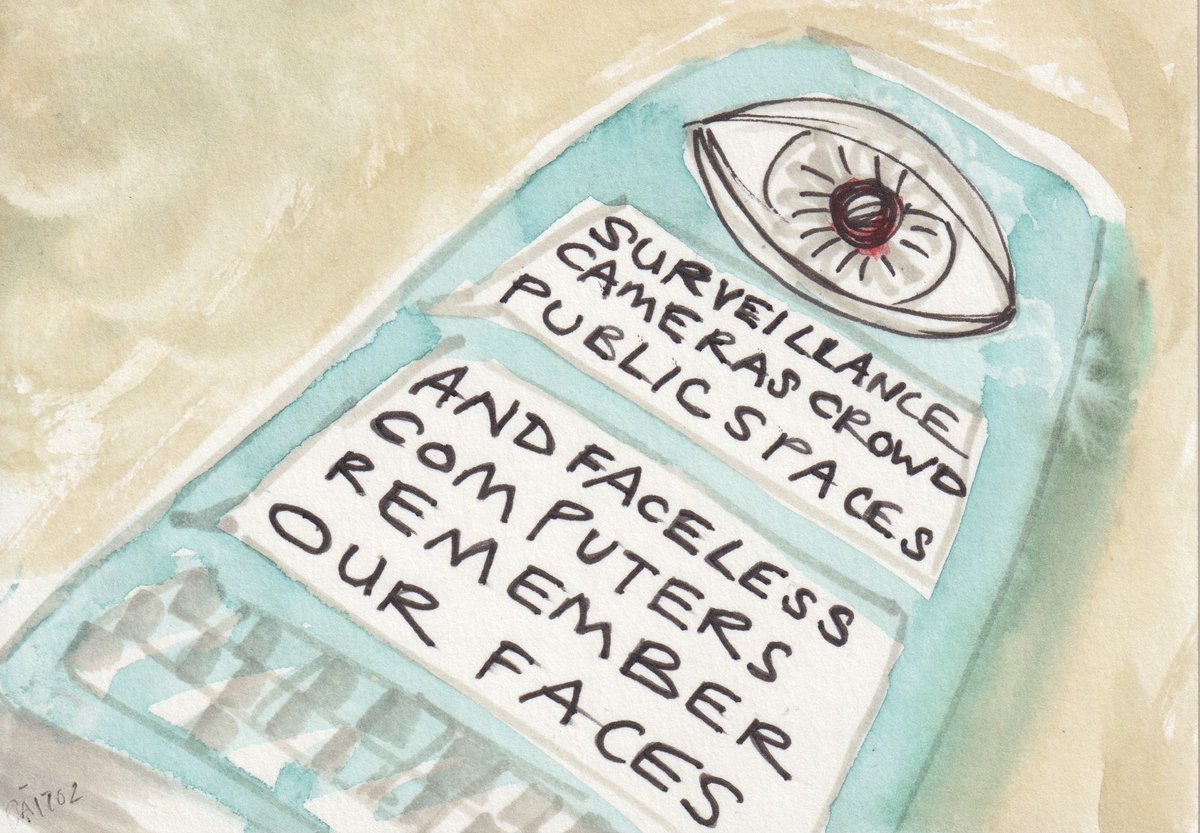 SURVEILLANCE
CAMERAS CROWD
PUBLIC SPACES
AND FACELESS
COMPUTERS
REMEMBER
OUR FACES